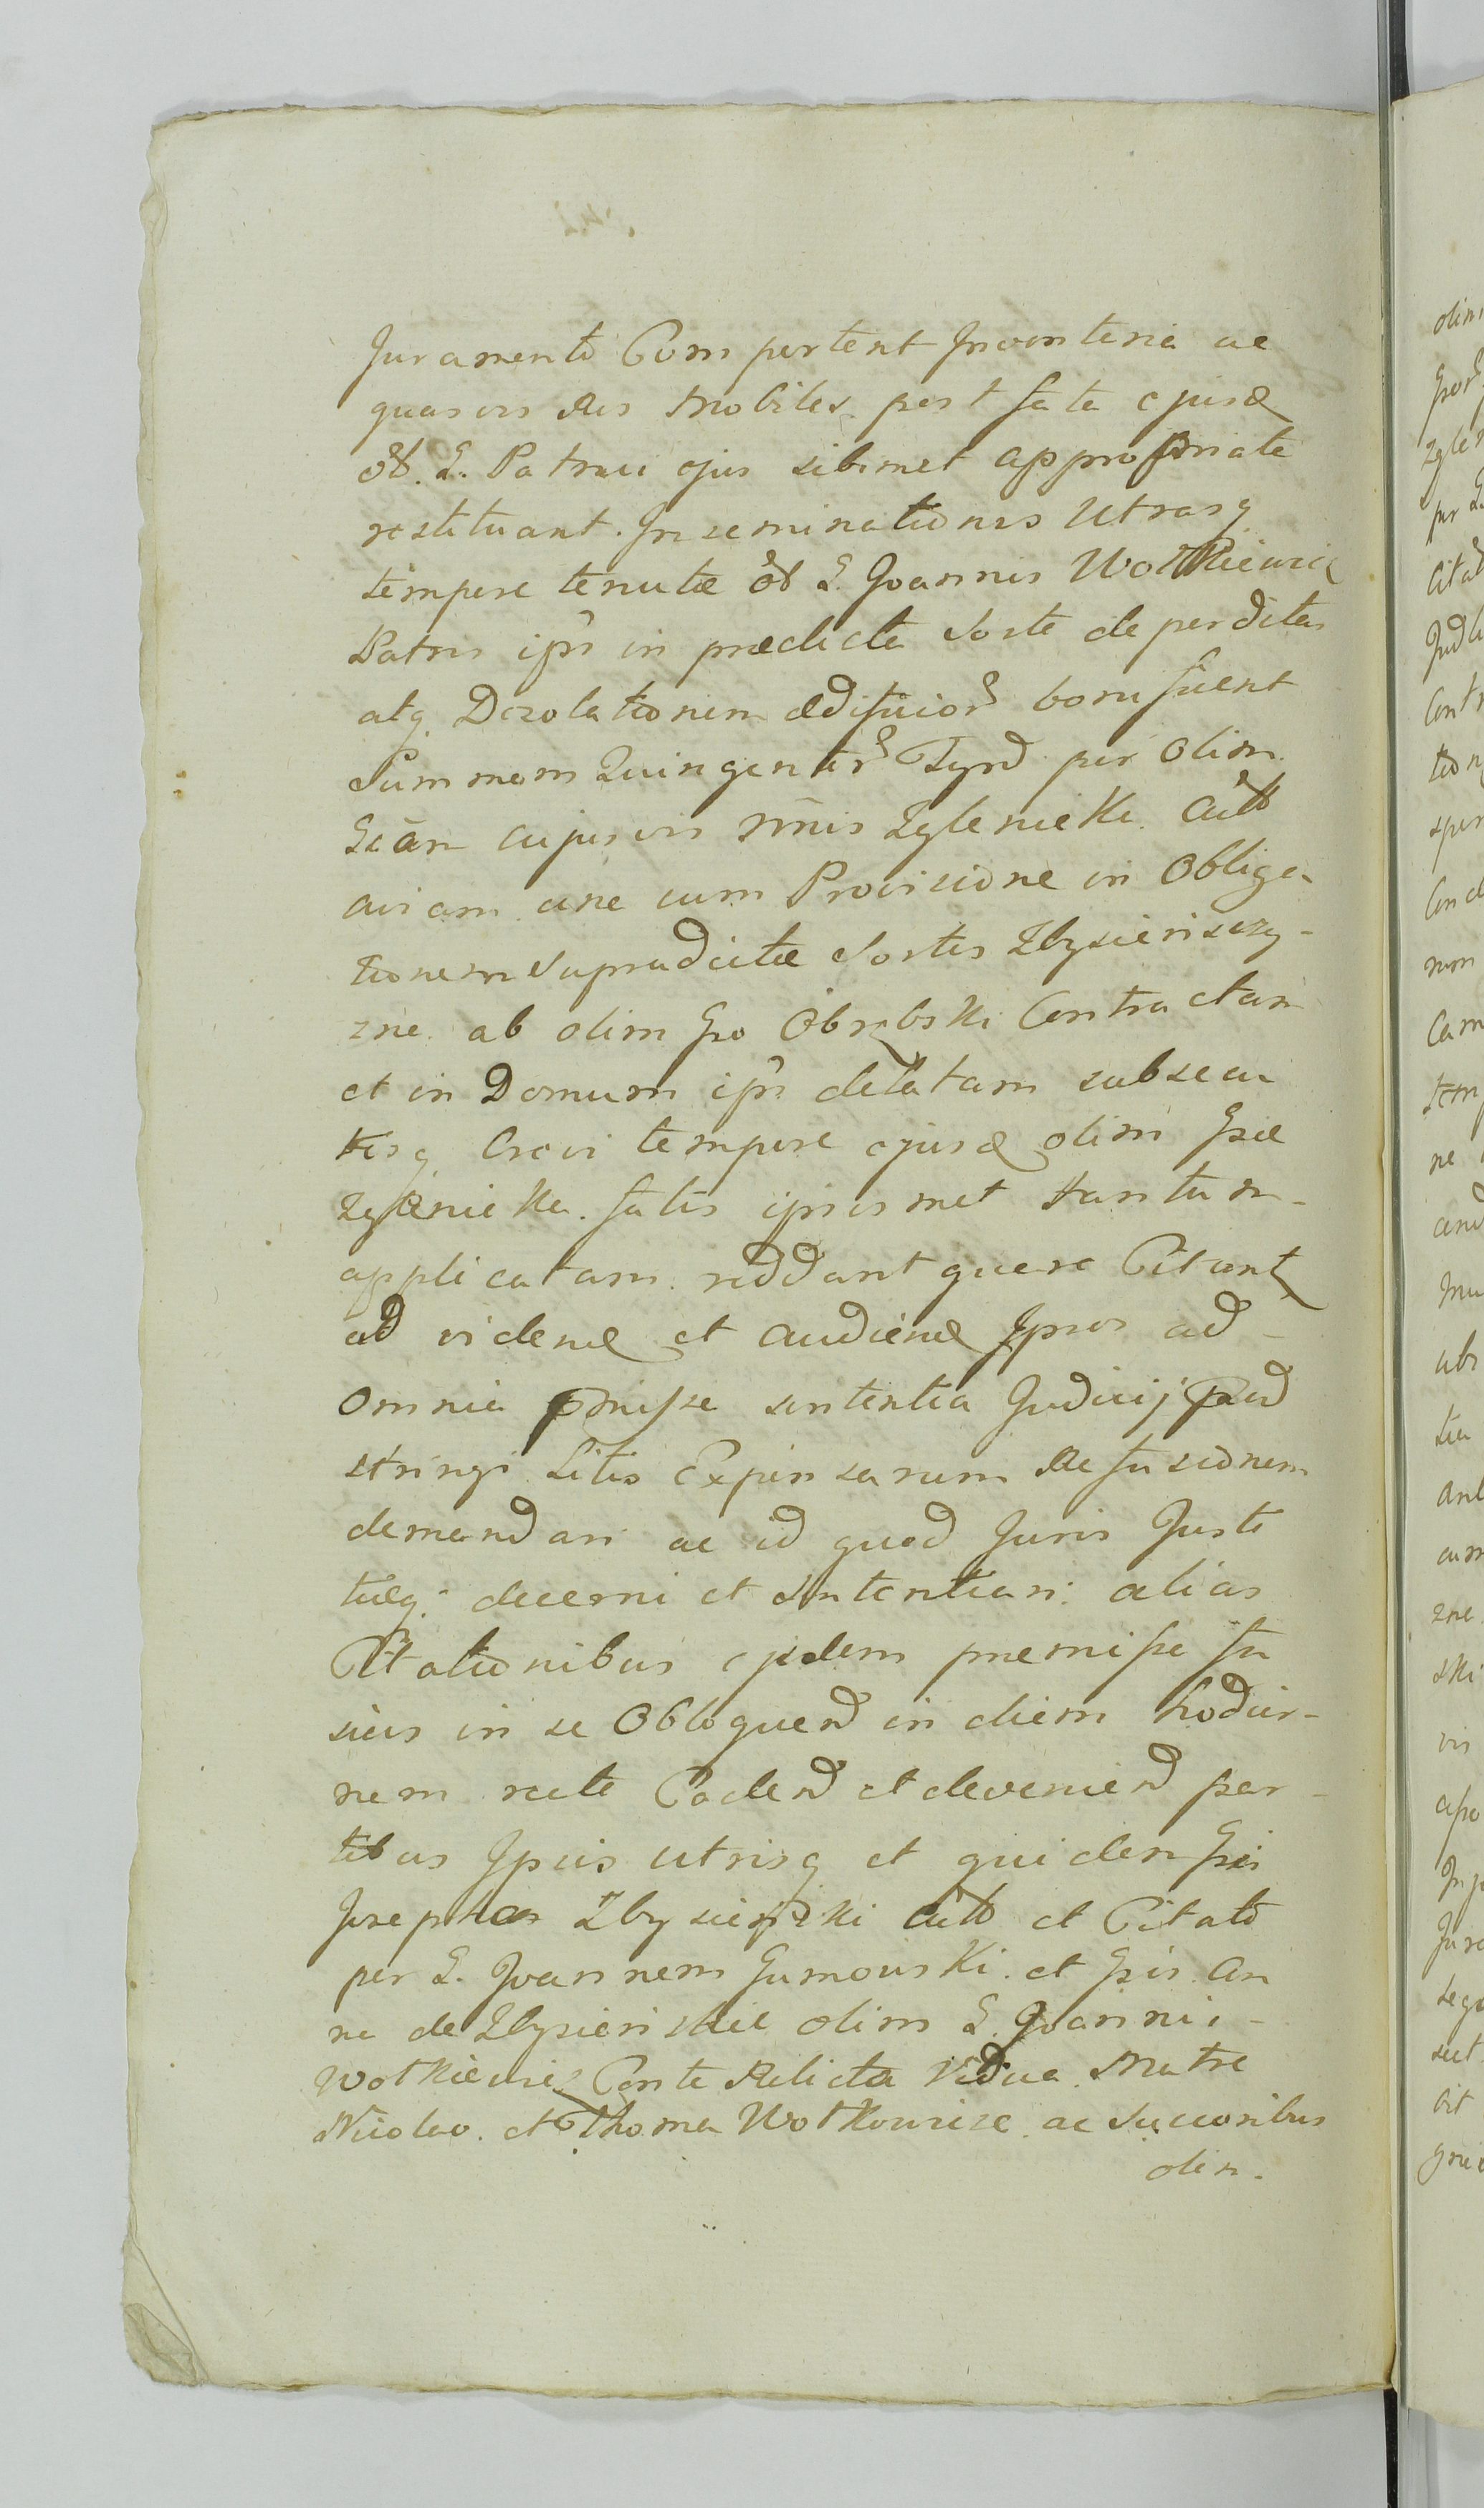 Juramento Comportent Inventeria ac
quasvis Res Mobiles post fata ejusd
olt. G. Patrui ejus sibimet appropriate
restituant. Inseminationes Utrasq
tempore tenutæ olt G. Joannis Wotkiewicz
Patris ipsi in prædicta Sorte deperditas
atq. Dezolationem ædificior bonificent
Summam Quingentar Tynf per Olim
Gean cujusvis Nnis Zglenicka Citt
aviam une cum Provisione in Obliga
tionem Supradictæ Sortis Zbysieńsczy-
zne ab olim Gso Obrębski Contractam
et in Domum ipsi delatam subsecu
tisq brevi tempore ejusd olim Gsæ
Zglenicka fatis ipsismet tantum-
applicatam reddant quare Citant
ad vidend et audiend Ipsos ad-
omnia pmisse sententia Judicij pnd
stringi Litis Expensarum Refusionem
demandari ac id quod Juris Justi
tiæq. decerni et Sententiari alias
Citationibus ejsdem premisse fu
sius in se Obloquend in diem hodier-
nem recte Cadend et deveniend par-
tibus Ipsis utrisq et quidem Gsis
Josepho Zbysieński Citt et Citato
per G. Joannem Gumowski. et Gsis An
na de Zbysieńskie olim G. Joannis-
Wotkiewicz Conte Relicta Vidua Matre
Nicolao. et Thoma Wotkowicze ac Succoribus
olim.

olim
Zgle
per G
Citat
Judi
Cont
tion
Cond
num
Cam
ne
ubi
tia
cum
zne
ski
vis
bit